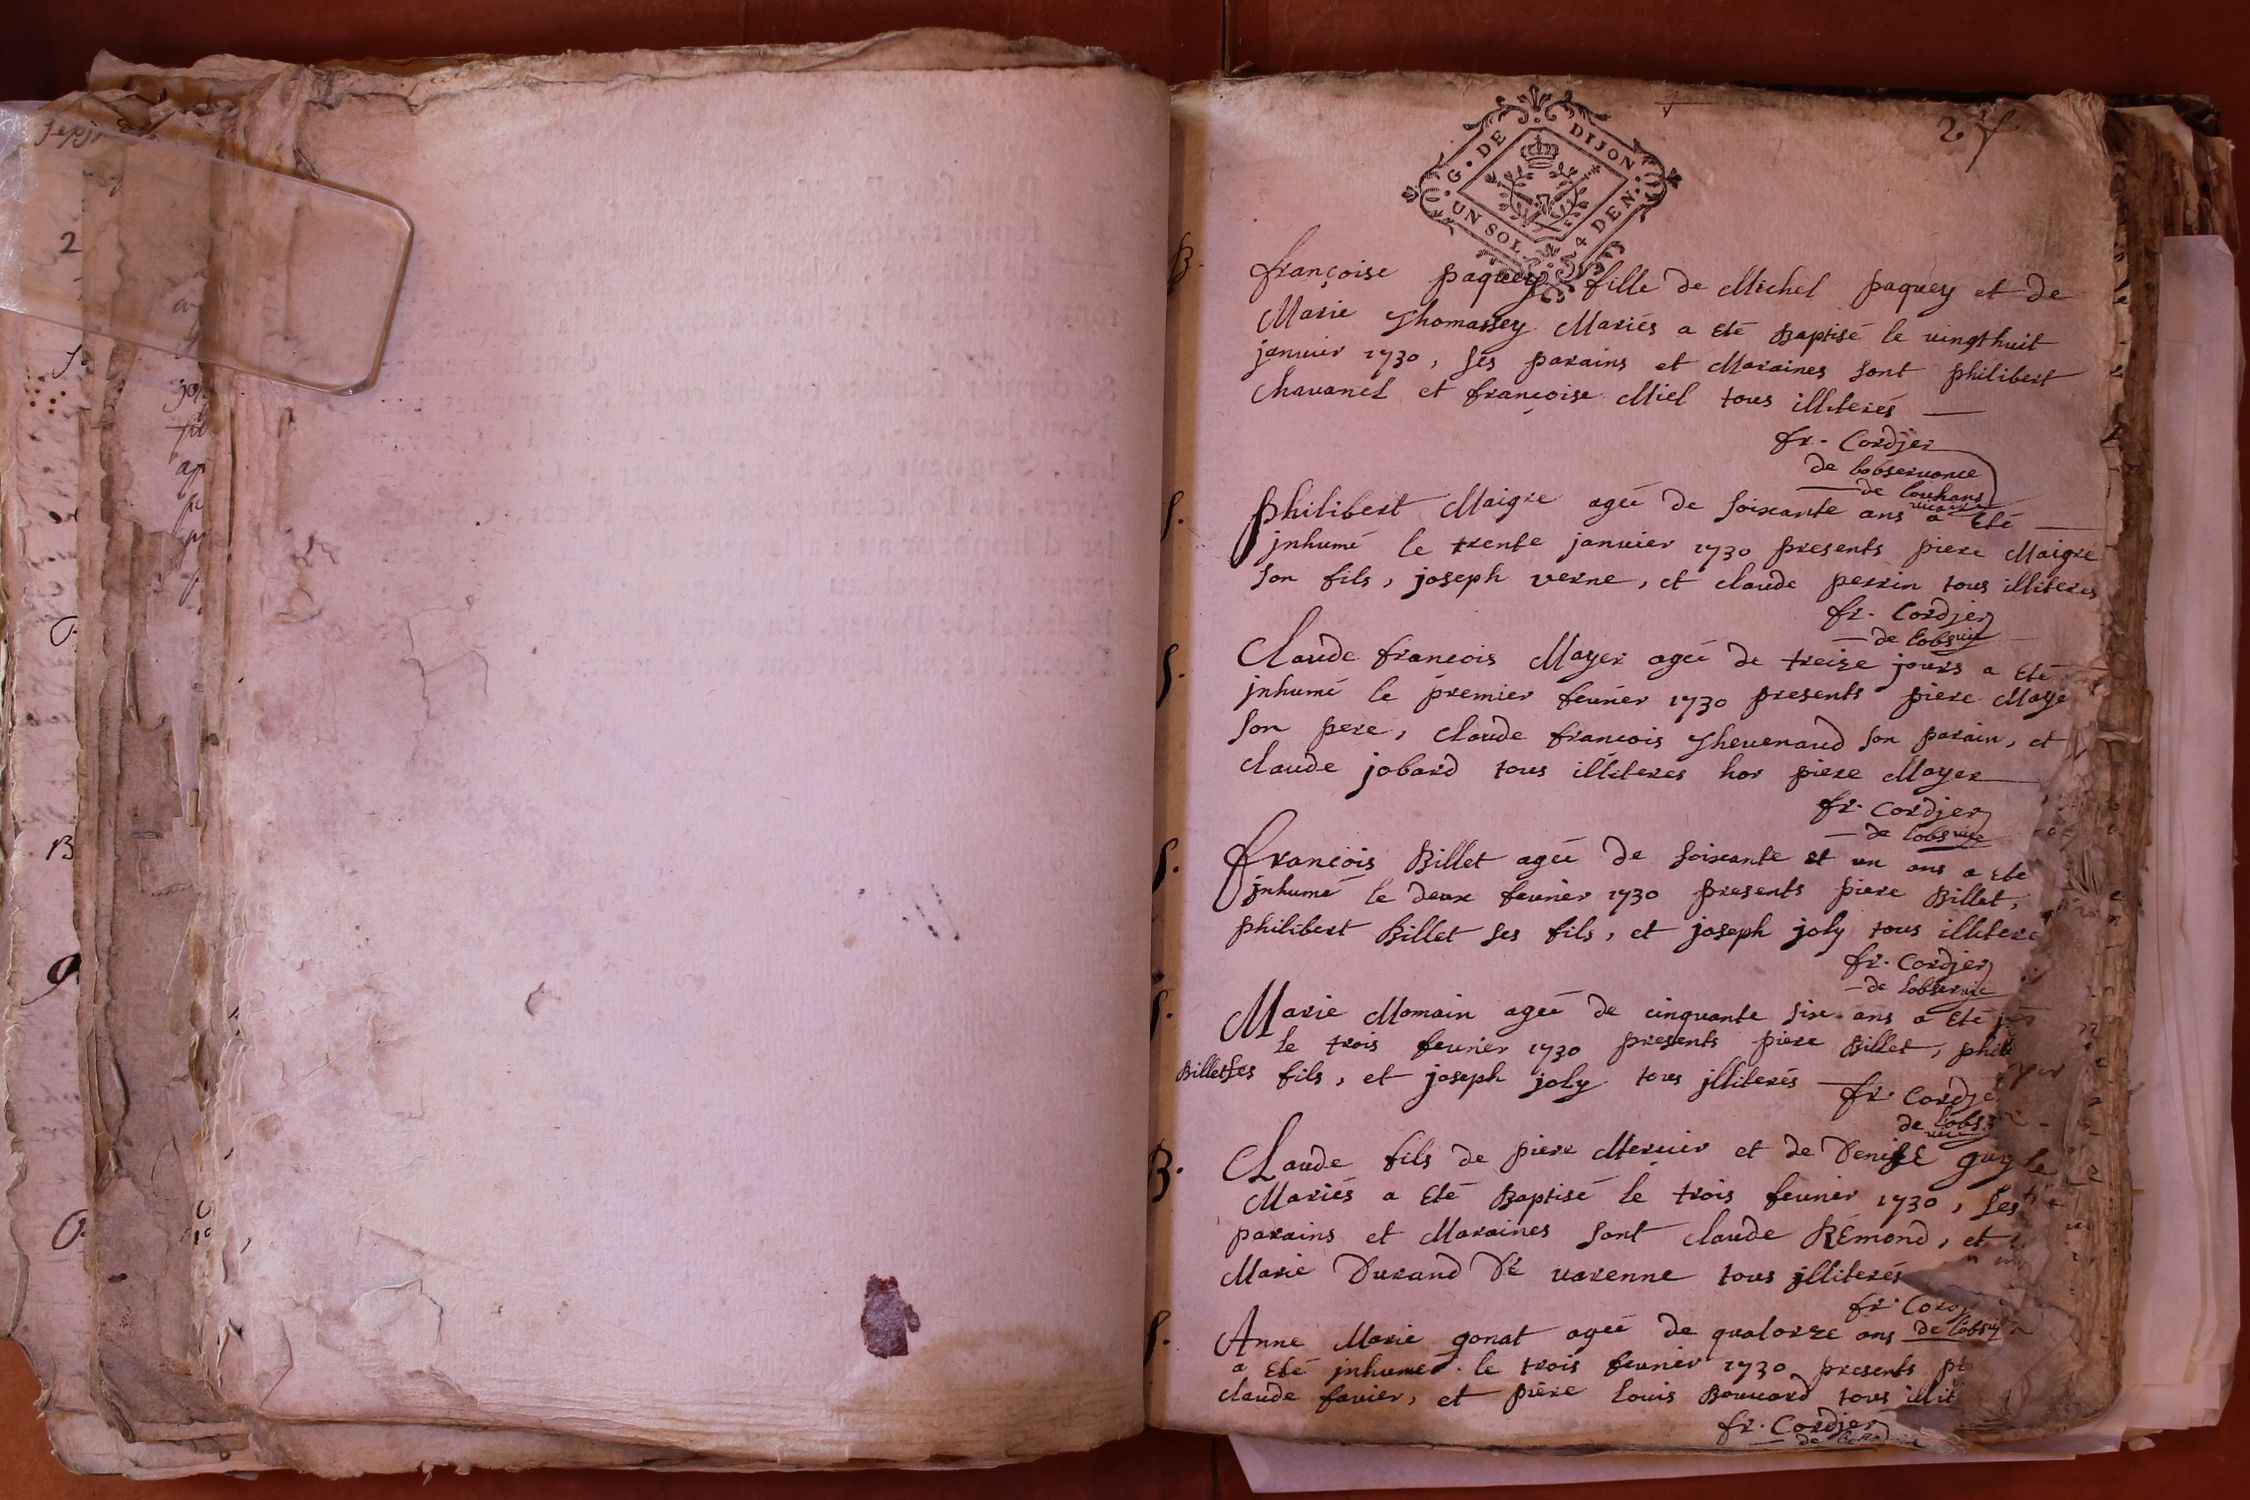 G. DE DIJON.
UN SOL 4 DEN.
B.
françoise paquey fille de Michel paquey et de
Marie Thomassey Mariés a Eté Baptisé le vingthuit
januier 1730, ses parains et Maraines sont philibert
Chavanel et francoise Miel tous illiterés
fr. Cordjer
de lobseruance
de louhans
vicaire
S.
philibert Maigre ageé de soixante ans a Eté
jnhumé le trente januier 1730 presents piere Maigre
son fils, joseph verne, et claude perrin tous illiteres
fr. Cordjer
de lobs vic
S.
Claude francois Mayer ageé de treize jours a Eté
jnhumé le premier feurier 1730 presents piere Maye
son pere, Claude francois Theuenaud son parain, et
claude jobard tous illiteres hor piere Mayer
fr. Cordjer
de lobs vice
S.
francois Billet ageé de soixante et un ans a eté
jnhumé le deux feurier 1730 presents piere Billet,
philibert Billet ses fils, et joseph joly tous illitere
fr. Cordjer
de lobser vic
S.
Marie Momain ageé de cinquante six ans a Eté
le trois feurier 1730 presents piere Billet, phili
Billet ses fils, et joseph joly tous jlliterés
fr. Cordje
de lobs
B.
Claude fils de piere Mercier et de Denise guy
Mariés a Eté Baptisé le trois feurier 1730, ses
parains et Maraines sont claude REmond, et
Marie Durand De varenne tous jlliterés
fr. Cordj
de lobs
S.
Anne Marie gonat ageé de quatorze ans
a Eté jnhumeé le trois feurier 1730 presents
claude favier, et piere Louis Bouuard tous illit
fr. Cordjer